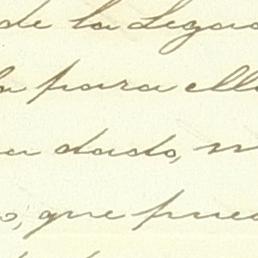 de la Legac
la para ello
a dado, m
o, que pued